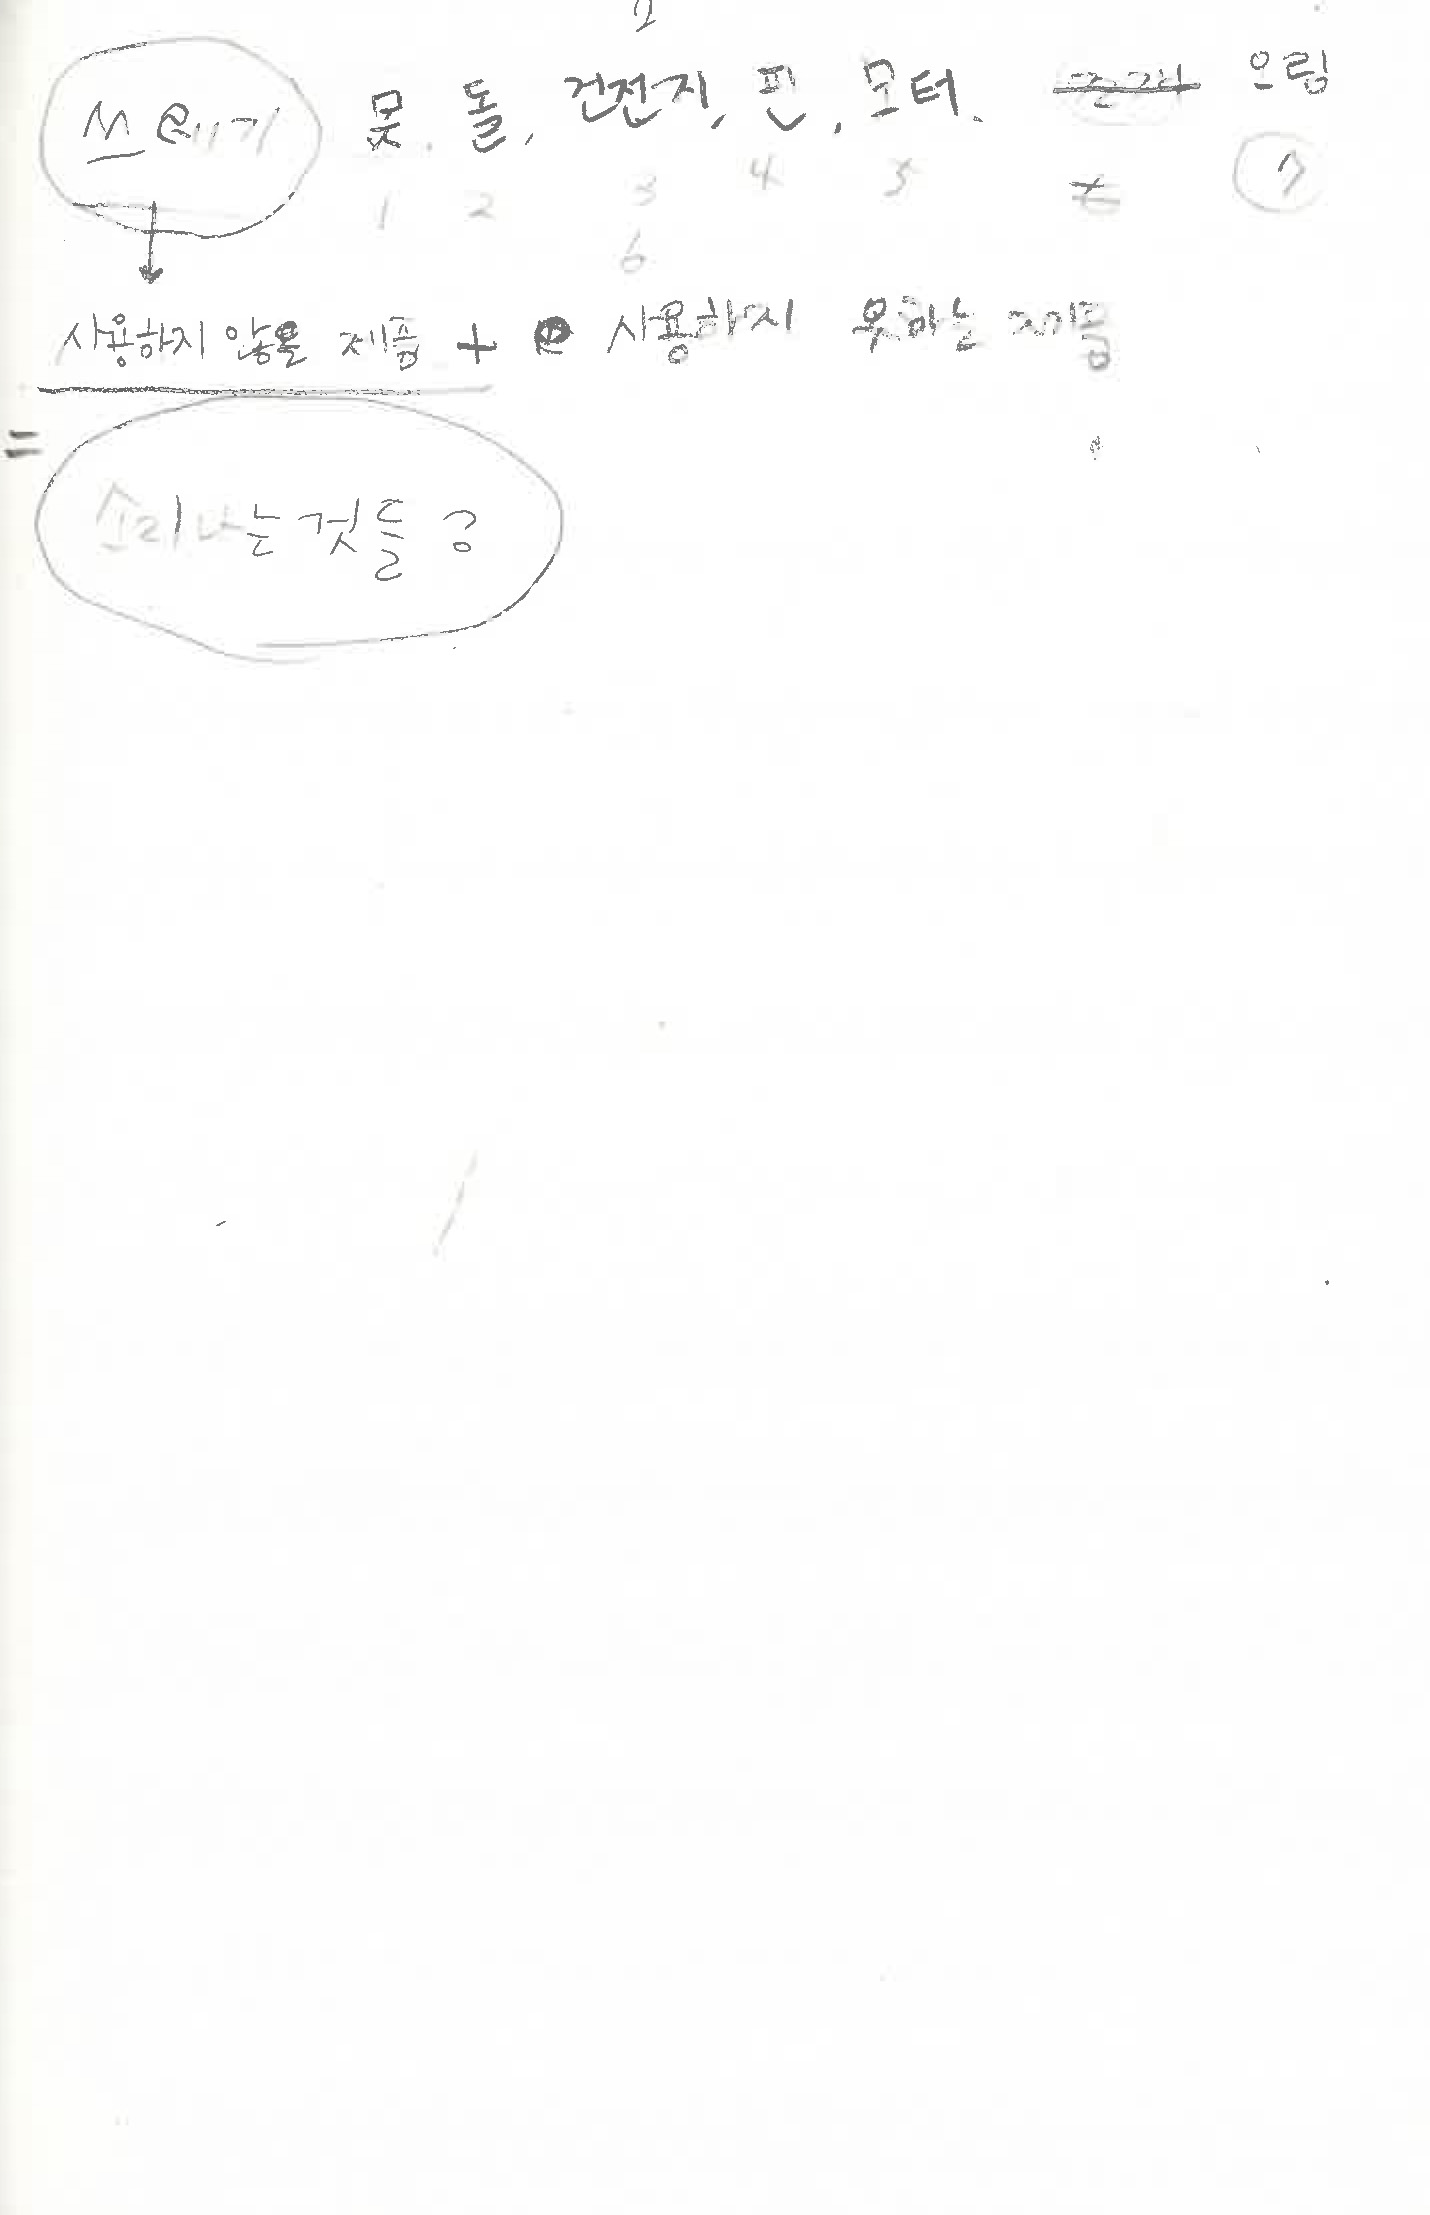 2
쓰레기 못. 돌, 건전지, 핀, 모터. 오림
1 2 3 4 5 7
6
사용하지 않을 제품 + 사용하지 못하는 제품
=
소리나는것들?